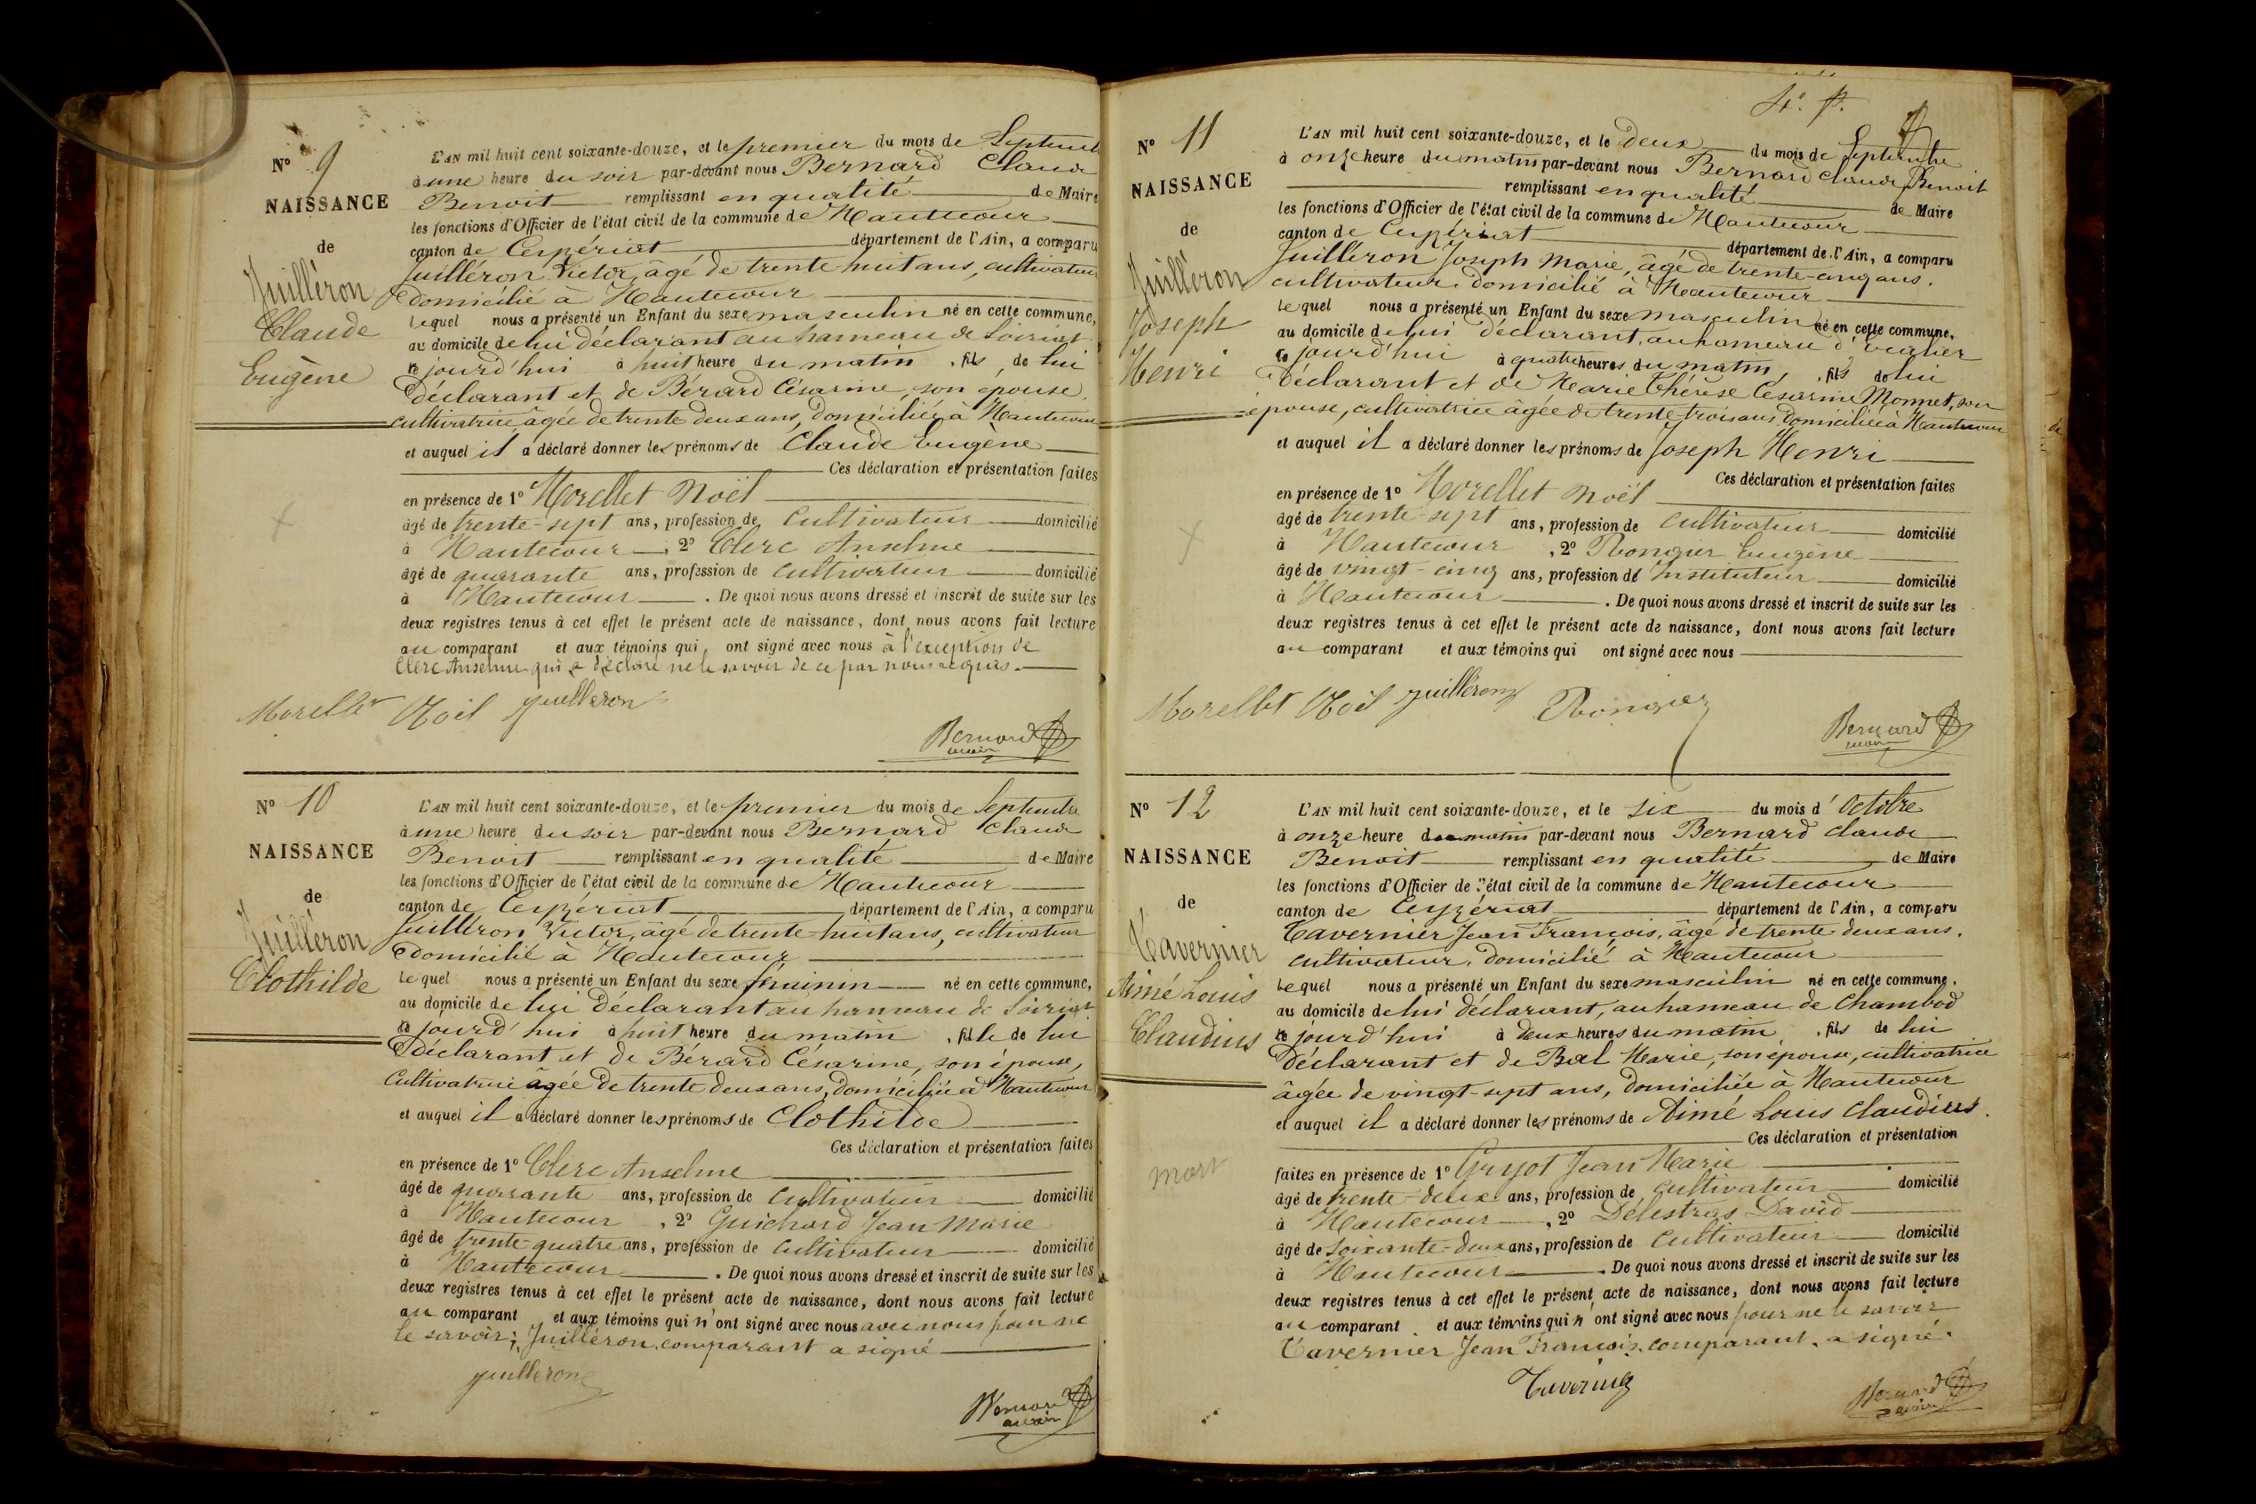 N° 9
NAISSANCE
de
Juilléron
Claude
Eugène
L'AN mil huit cent soixante-douze, et le premier du mois de Septemb
à une heure du soir par-devant nous Bernard Claude
Benoit remplissant en qualité de Maire
les fonctions d'Officier de l'état civil de la commune de Hautecour
canton de Ceyzériat département de l'Ain, a comparu
Juilléron Victor, âgé de trente huit ans, cultivateur
domicilié à Hautecour
lequel nous a présenté un Enfant du sexe masculin né en cette commune,
au domicile de lui déclarant au hameau de Soiriat
ce jourd'hui à huit heure du matin, fils de lui
déclarant et de Bérard Césarine, son épouse,
cultivatrice âgée de trente deux ans, domiciliée à Hautecour
et auquel il a déclaré donner les prénoms de Claude Eugène
Ces déclaration et présentation faites
en présence de 1° Morellet Noël
âgé de trente-sept ans, profession de cultivateur domicilié
à Hautecour, 2° Clerc Anselme
âgé de quarante ans, profession de cultivateur domicilié
à Hautecour. De quoi nous avons dressé et inscrit de suite sur les
deux registres tenus à cet effet le présent acte de naissance, dont nous avons fait lecture
au comparant et aux témoins qui ont signé avec nous à l'exception de
Clerc Anselme qui a déclaré ne le savoir de ce par nous requis.
Morellet Noël Juilleron
Bernard
maire
N° 10
NAISSANCE
de
Juilléron
Clothilde
L'AN mil huit cent soixante-douze, et le premier du mois de Septembre
à une heure du soir par-devant nous Bernard Claude
Benoit remplissant en qualité de Maire
les fonctions d'Officier de l'état civil de la commune de Hautecour
canton de Ceyzériat département de l'Ain, a comparu
Juilléron Victor, âgé de trente-huit ans, cultivateur
domicilié à Hautecour
lequel nous a présenté un Enfant du sexe féminin né en cette commune,
au domicile de lui déclarant au hameau de Soiriat
ce jourd'hui à huit heure du matin, fille de lui
déclarant et de Bérard Césarine, son épouse,
cultivatrice âgée de trente deux ans, domiciliée à Hautecour
et auquel il a déclaré donner les prénoms de Clothilde
Ces déclaration et présentation faites
en présence de 1° Clerc Anselme
âgé de quarante ans, profession de cultivateur domicilié
à Hautecour, 2° Guichard Jean Marie
âgé de trente-quatre ans, profession de cultivateur domicilié
à Hautecour. De quoi nous avons dressé et inscrit de suite sur les
deux registres tenus à cet effet le présent acte de naissance, dont nous avons fait lecture
au comparant et aux témoins qui n'ont signé avec nous avec nous pour ne
le savoir; Juilléron, comparant a signé
Juilleron
Bernard
maire
4e. f.
N° 11
NAISSANCE
de
Juilléron
Joseph
Henri
L'AN mil huit cent soixante-douze, et le deux du mois de Septembre
à onze heure du matin par-devant nous Bernard Claude Benoit
remplissant en qualité de Maire
les fonctions d'Officier de l'état civil de la commune de Hautecour
canton de Ceyzériat département de l'Ain, a comparu
Juilléron Joseph Marie, âgé de trente-cinq ans,
cultivateur, domicilié à Hautecour
lequel nous a présenté un Enfant du sexe masculin né en cette commune,
au domicile de lui déclarant, au hameau d'
ce jourd'hui à quatre heures du matin, fils de lui
déclarant et de Marie Thérèse Césarine Monnet, son
épouse, cultivatrice âgée de trente-trois ans, domiciliée à Hautecour
et auquel il a déclaré donner les prénoms de Joseph Henri
Ces déclaration et présentation faites
en présence de 1° Morellet Noël
âgé de trente-sept ans, profession de cultivateur domicilié
à Hautecour, 2° Rongier Eugène
âgé de vingt-cinq ans, profession de Instituteur domicilié
à Hautecour. De quoi nous avons dressé et inscrit de suite sur les
deux registres tenus à cet effet le présent acte de naissance, dont nous avons fait lecture
au comparant et aux témoins qui ont signé avec nous
Morellet Noël Juilléron Rongier
Bernard
maire
N° 12
NAISSANCE
de
Tavernier
Aimé Louis
Claudius
mort
L'AN mil huit cent soixante-douze, et le six du mois d'Octobre
à onze heure du matin par-devant nous Bernard Claude
Benoit remplissant en qualité de Maire
les fonctions d'Officier de l'état civil de la commune de Hautecour
canton de Ceyzériat département de l'Ain, a comparu
Tavernier Jean François, âgé de trente deux ans,
cultivateur, domicilié à Hautecour
lequel nous a présenté un Enfant du sexe masculin né en cette commune,
au domicile de lui déclarant, au hameau de Chambod
ce jourd'hui à deux heures du matin, fils de lui
déclarant et de Bal Marie, son épouse, cultivatrice
âgée de vingt-sept ans, domiciliée à Hautecour
et auquel il a déclaré donner les prénoms de Aimé Louis Claudius.
Ces déclaration et présentation
faites en présence de 1° Guyot Jean Marie
âgé de trente-deux ans, profession de cultivateur domicilié
à Hautecour, 2° Delestras David
âgé de soixante-deux ans, profession de cultivateur domicilié
à Hautecour. De quoi nous avons dressé et inscrit de suite sur les
deux registres tenus à cet effet le présent acte de naissance, dont nous avons fait lecture
au comparant et aux témoins qui n'ont signé avec nous pour ne le savoir
Tavernier Jean François, comparant, a signé.
Tavernier
Bernard
maire